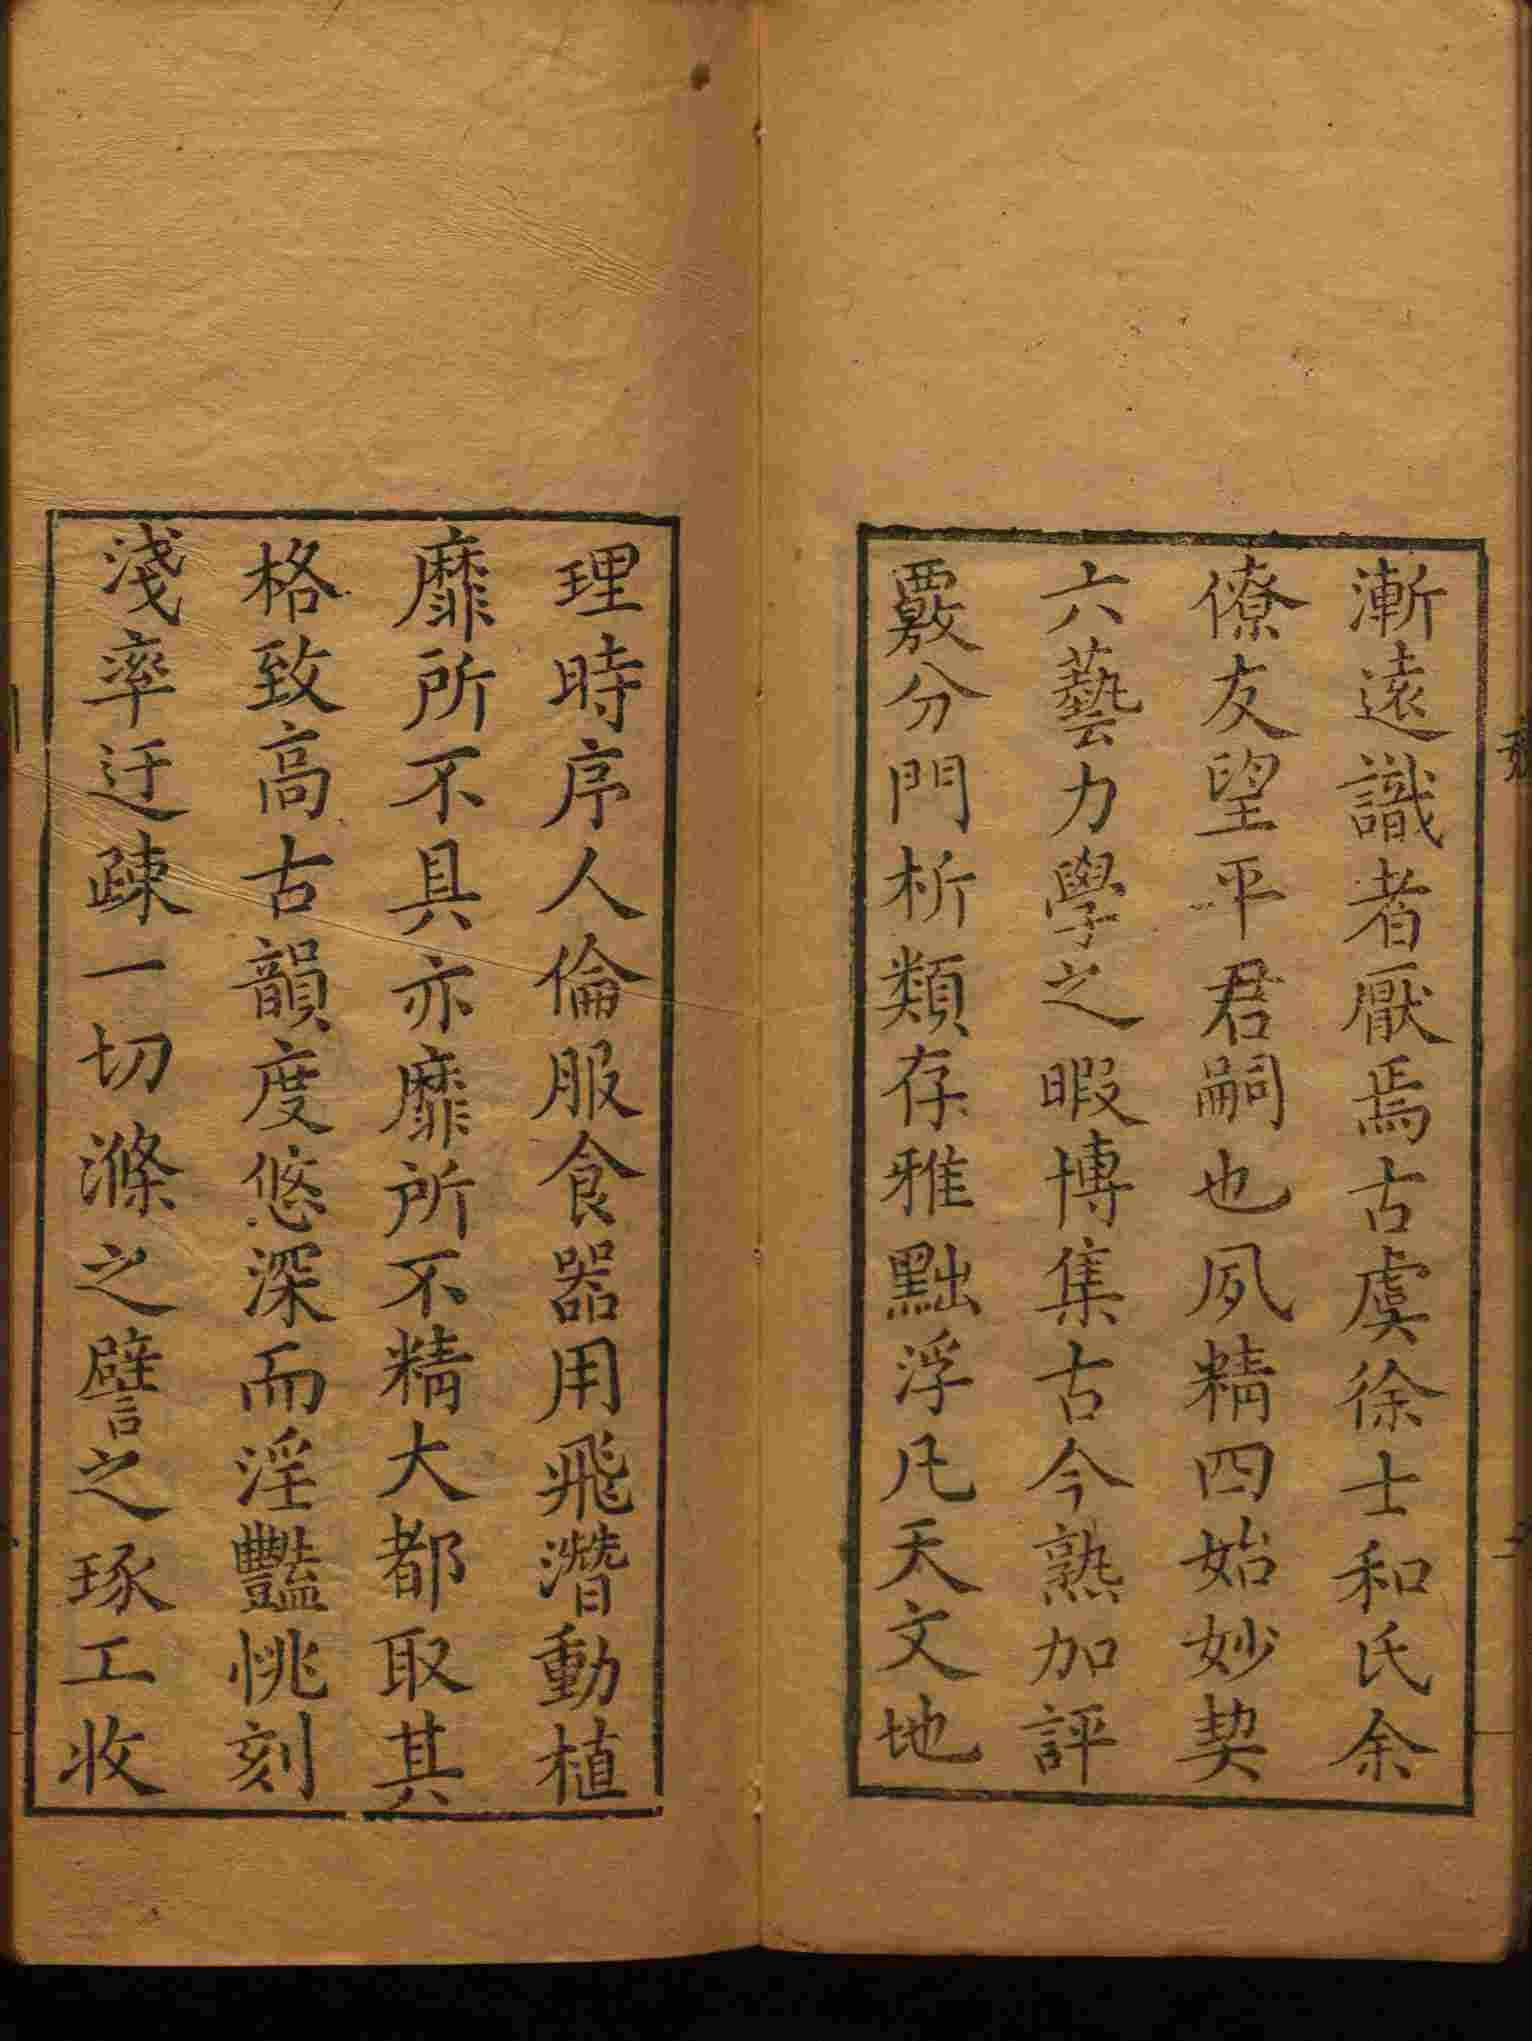 漸遠識者厭焉古虞徐士和氏余
僚友望平君嗣也夙精四始妙契
六藝力學之暇博集古今熟加評
覈分門析類存雅黜浮凡天文地
理時序人倫服食器用飛潛動植
靡所不具亦靡所不精大都取其
格致高古韻度悠深而淫豔恌刻
淺率迂疎一切滌之譬之琢工收